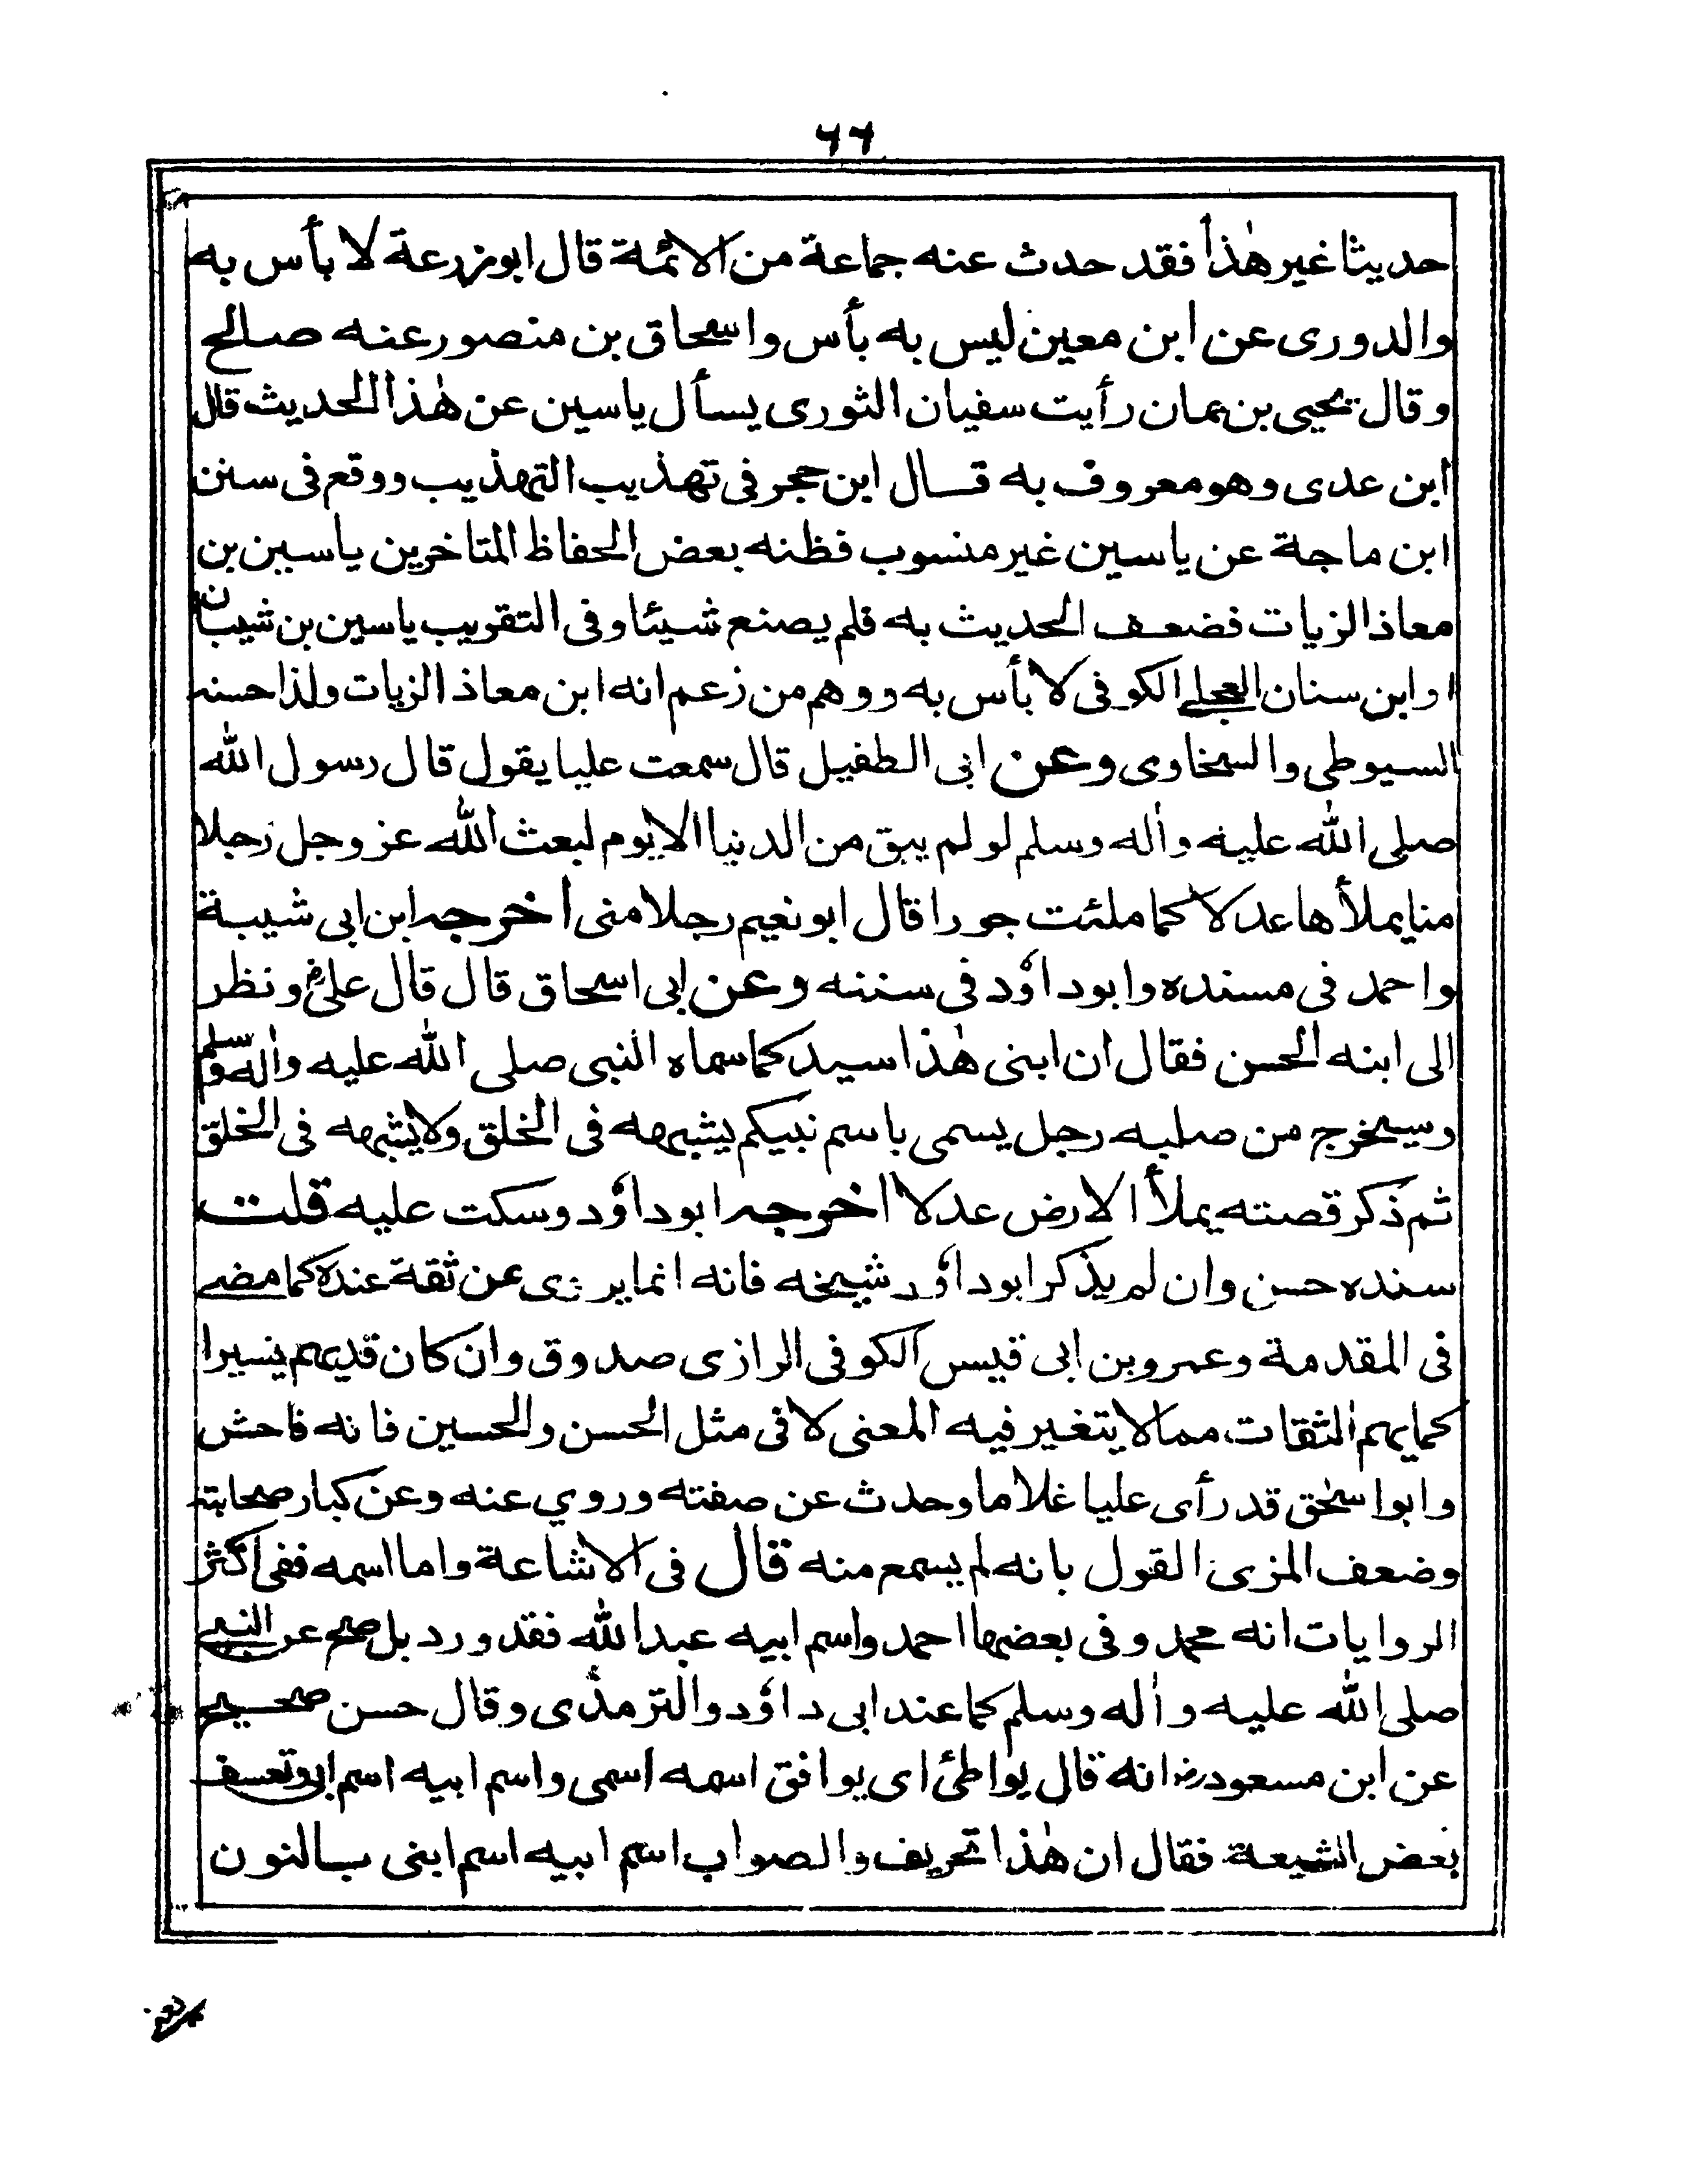 ٦٦
حديثا غير هٰذا فقد حدث عنه جماعة من الائمة قال ابوزرعة لا بأس به
والدورى عن ابن معين ليس به بأس واسحاق بن منصور عنه صالح
وقال يحيى بن يمان رأيت سفيان الثورى يسأل ياسين عن هٰذا الحديث قال
ابن عدى وهو معروف به قال ابن حجر فى تهذيب التهذيب ووقع فى سنن
ابن ماجة عن ياسين غير منسوب فظنه بعض الحفاظ المتاخرين ياسين بن
معاذ الزيات فضعف الحديث به فلم يصنع شيئا وفى التقريب ياسين بن شيبان
او ابن سنان العجلى الكوفى لا بأس به ووهم من زعم انه ابن معاذ الزيات ولذا حسنه
السيوطى والسخاوى وعن ابى الطفيل قال سمعت عليا يقول قال رسول الله
صلى الله عليه واٰله وسلم لو لم يبق من الدنيا الا يوم لبعث الله عز وجل رجلا
منا يملأها عدلا كما ملئت جورا قال ابو نعيم رجلا منى اخرجه ابن ابى شيبة
واحمد فى مسنده وابو داؤد فى سننه وعن ابى اسحاق قال قال علىؓ ونظر
الى ابنه الحسن فقال ان ابنى هٰذا سيد كما سماه النبى صلى الله عليه واٰله وسلم
وسيخرج من صلبه رجل يسمى باسم نبيكم يشبهه فى الخلق ولا يشبهه فى الخلق
ثم ذكر قصته يملأ الارض عدلا اخرجه ابو داؤد وسكت عليه قلت
سنده حسن وان لم يذكر ابو داؤد شيخه فانه انما يروى عن ثقة عنده كما مضى
فى المقدمة وعمرو بن ابى قيس الكوفى الرازى صدوق وان كان قد يهم يسيرا
كما يهم الثقات مما لا يتغير فيه المعنى لا فى مثل الحسن والحسين فانه فاحش
وابو اسحٰق قد رأى عليا غلاما وحدث عن صفته وروي عنه وعن كبار صحابته
وضعف المزى القول بانه لم يسمع منه قال فى الاشاعة واما اسمه ففى اكثر
الروايات انه محمد وفى بعضها احمد واسم ابيه عبد الله فقد ورد بل صح عن النبى
صلى الله عليه واٰله وسلم كما عند ابى داؤد والترمذى وقال حسن صحيح
عن ابن مسعودؓ انه قال يواطئ اى يوافق اسمه اسمى واسم ابيه اسم ابى وتعسف
بعض الشيعة فقال ان هٰذا تحريف والصواب اسم ابيه اسم ابنى بالنون